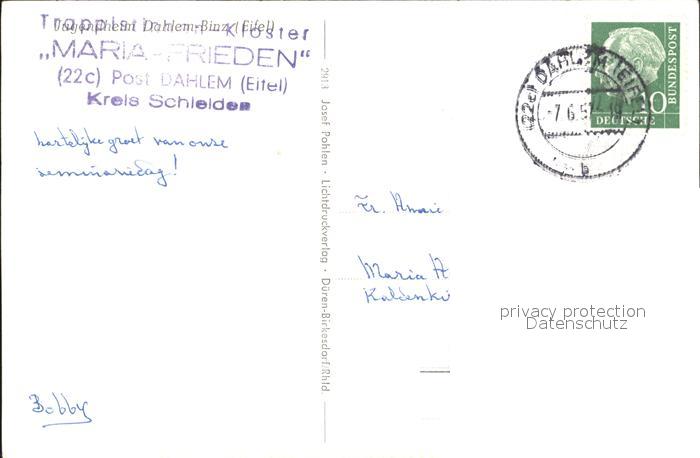 Trappistinnen-Kloster
Jugendheim Dahlem-Binz (Eifel)
„MARIA-FRIEDEN“
(22c) Post DAHLEM (Eifel)
Kreis Schleiden
hartelijke groet van onze
seminariedag!
Bobby
2913 Josef Pohlen · Lichtdruckverlag · Düren-Birkesdorf/Rhld.
Fr.
Maria H
DEUTSCHE
BUNDESPOST
10
(22c) DAHLEM (EIFEL)
-7.6.57
b
privacy protection
Datenschutz